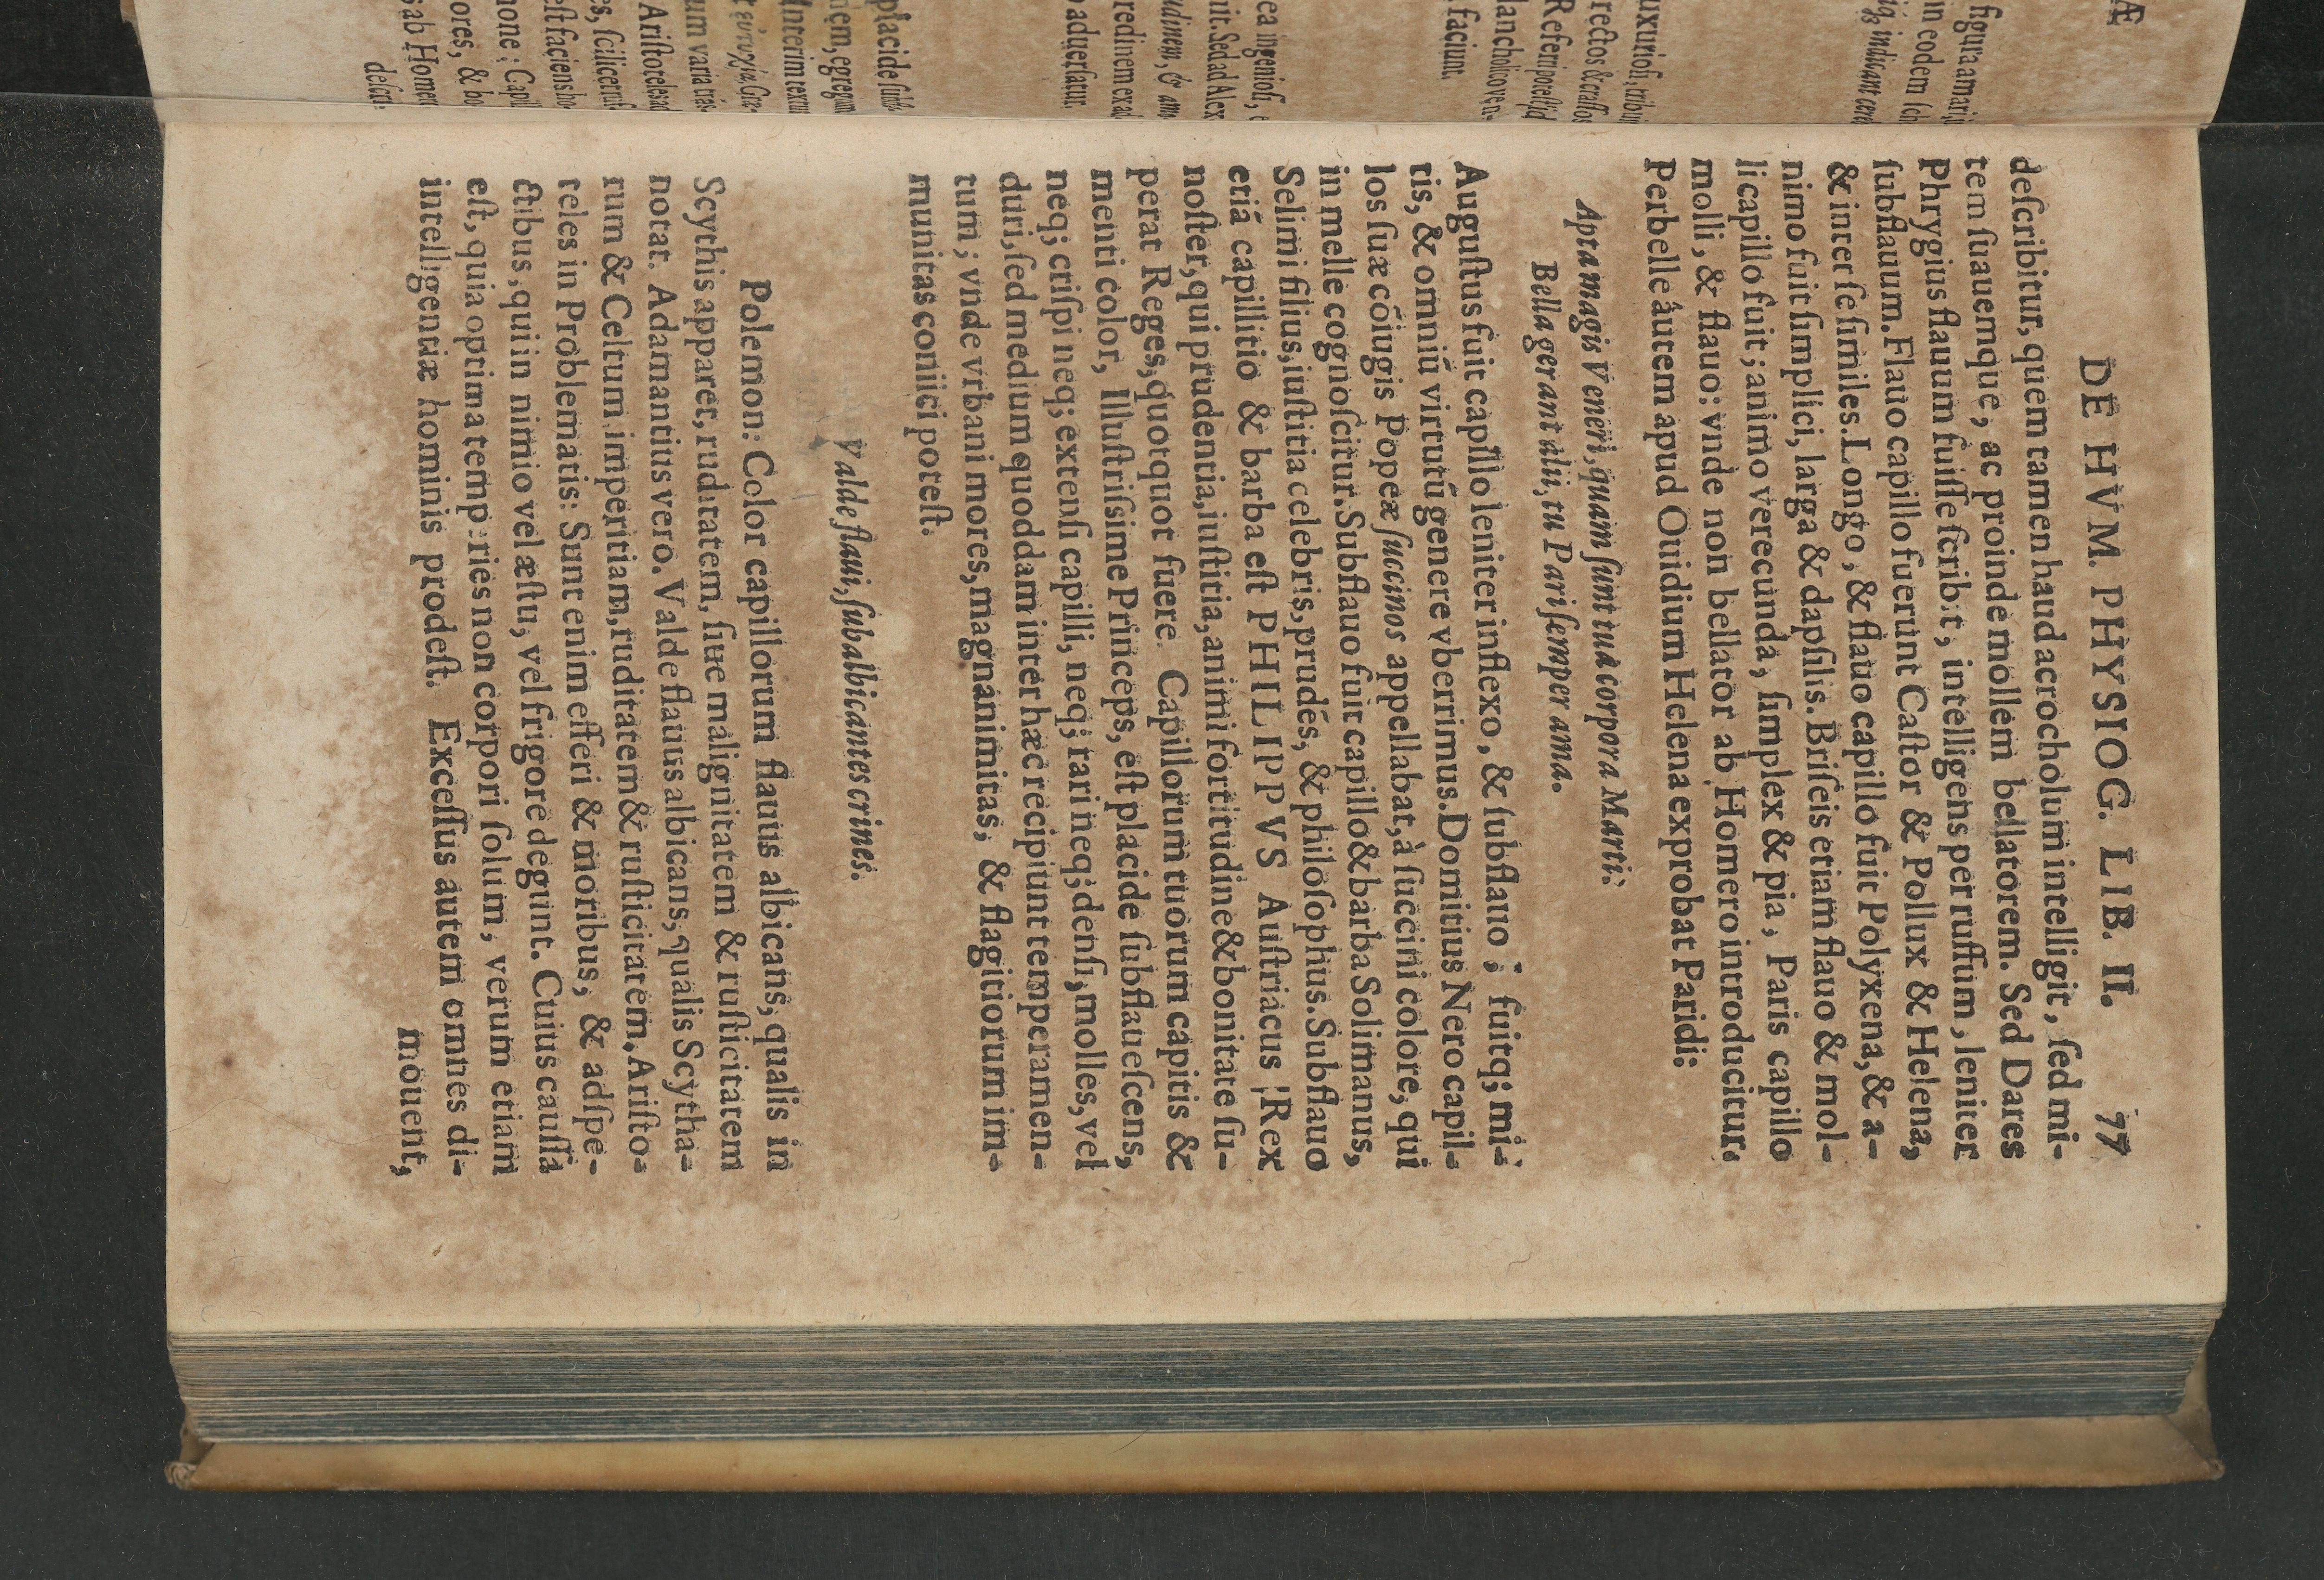 DE HVM. PHYSIOG. LIB. II. 77
deſcribitur, quem tamen haud acrocholum intelligit, ſed mi-
tem ſuauemque, ac proinde mollem bellatorem. Sed Dares
Phrygius flauum fuiſſe ſcribit, intelligens per ruffum, leniter
ſubflauum. Flauo capillo fuerunt Caſtor & Pollux & Helena,
& inter ſe ſimiles. Longo, & flauo capillo fuit Polyxena, & a-
nimo fuit ſimplici, larga & dapſilis. Briſeis etiam flauo & mol-
li capillo fuit; animo verecunda, ſimplex & pia, Paris capillo
molli, & flauo: vnde non bellator ab Homero introducitur.
Perbelle autem apud Ouidium Helena exprobat Paridi:
Apta magis Veneri, quam ſunt tua corpora Marti:
Bella gerant alii, tu Pari ſemper ama.
Auguſtus fuit capillo leniter inflexo, & ſubflauo; fuitq; mi-
tis, & omniú virtutú genere vberrimus. Domitius Nero capil-
los ſuæ cóiugis Popeæ ſuccinos appellabat, à ſuccini colore, qui
in melle cognoſcitur. Subflauo fuit capillo & barba Solimanus,
Selimi filius, iuſtitia celebris, prudés, & philoſophus. Subflauo
etiá capillitio & barba eſt PHILIPPVS Auſtriacus Rex
noſter, qui prudentia, iuſtitia, animi fortitudine & bonitate ſu-
perat Reges, quotquot fuere. Capillorum tuorum capitis &
menti color, Illuſtriſsime Princeps, eſt placide ſubflaueſcens,
neq; criſpi neq; extenſi capilli, neq; rari neq; denſi, molles, vel
duri, ſed medium quoddam inter hæc recipiunt temperamen-
tum; vnde vrbani mores, magnanimitas, & flagitiorum im-
munitas coniici poteſt.
Valde flaui, ſubalbicantes crines.
Polemon: Color capillorum flauus albicans, qualis in
Scythis apparet, ruditatem, ſiue malignitatem & ruſticitatem
notat. Adamantius vero. Valde flauus albicans, qualis Scytha-
rum & Celtum imperitiam, ruditatem & ruſticitatem. Ariſto-
teles in Problematis: Sunt enim efferi & moribus, & adſpe-
ctibus, qui in nimio vel æſtu, vel frigore degunt. Cuius cauſſa
eſt, quia optima temperies non corpori ſolum, verum etiam
intelligentiæ hominis prodeſt. Exceſſus autem omnes di-
mouent,